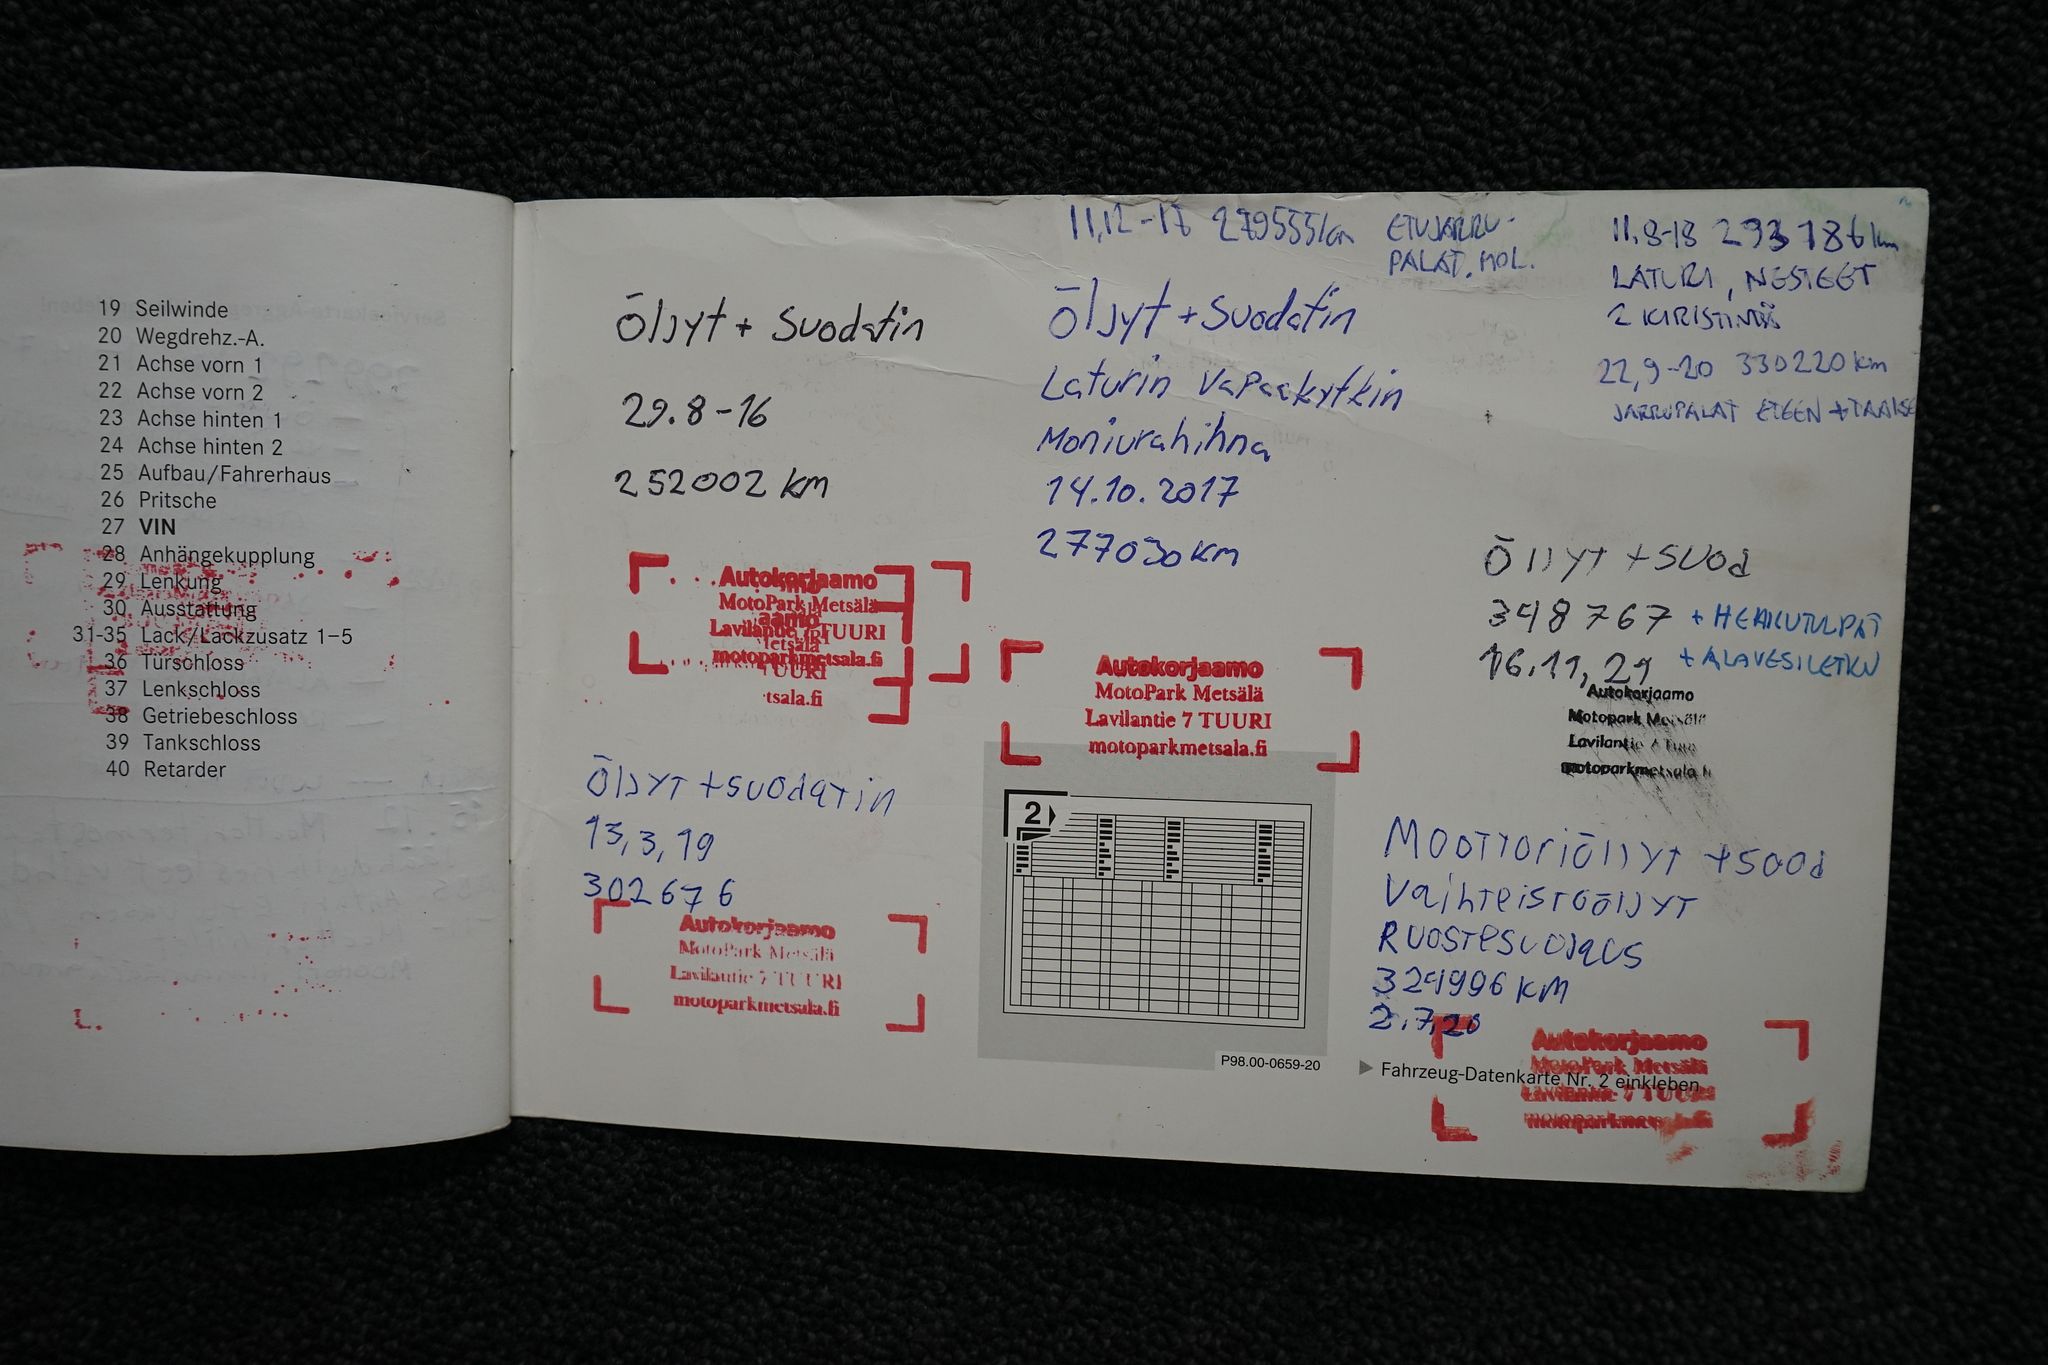 19 Seilwinde
20 Wegdrehz.-A.
21 Achse vorn 1
22 Achse vorn 2
23 Achse hinten 1
24 Achse hinten 2
25 Aufbau/Fahrerhaus
26 Pritsche
27 VIN
28 Anhängekupplung
29 Lenkung
30 Ausstattung
31-35 Lack/Lackzusatz 1-5
36 Türschloss
37 Lenkschloss
38 Getriebeschloss
39 Tankschloss
40 Retarder
Öljyt + Suodatin
29.8-16
252002 km
Autokorjaamo
MotoPark Metsälä
Lavilantie 7 TUURI
motoparkmetsala.fi
Öljyt + suodatin
13,3,19
302676
Autokorjaamo
MotoPark Metsälä
Lavilantie 7 TUURI
motoparkmetsala.fi
11,12-17 279555km
ETUJARRU-
PALAT. MOL.
Öljyt + Suodatin
Laturin Vapaakytkin
Moniurahihna
14.10.2017
277030 km
Autokorjaamo
MotoPark Metsälä
Lavilantie 7 TUURI
motoparkmetsala.fi
2
P98.00-0659-20
11,8-18 293786km
LATURI, NESTEET
2 KIRISTINTÄ
22,9-20 330220km
JARRUPALAT ETEEN + TAAKSE
Öljyt + suod
348767 + HEHKUTULPAT
16.11,21 + ALAVESILETKU
Autokorjaamo
Motopark Metsälä
Lavilantie 7 Tuuri
motoparkmetsala.fi
Moottoriöljyt + suod
Vaihteistoöljyt
Ruostesuojaus
324996 KM
2.7,20
Autokorjaamo
MotoPark Metsälä
Lavilantie 7 TUURI
motoparkmetsala.fi
Fahrzeug-Datenkarte Nr. 2 einkleben